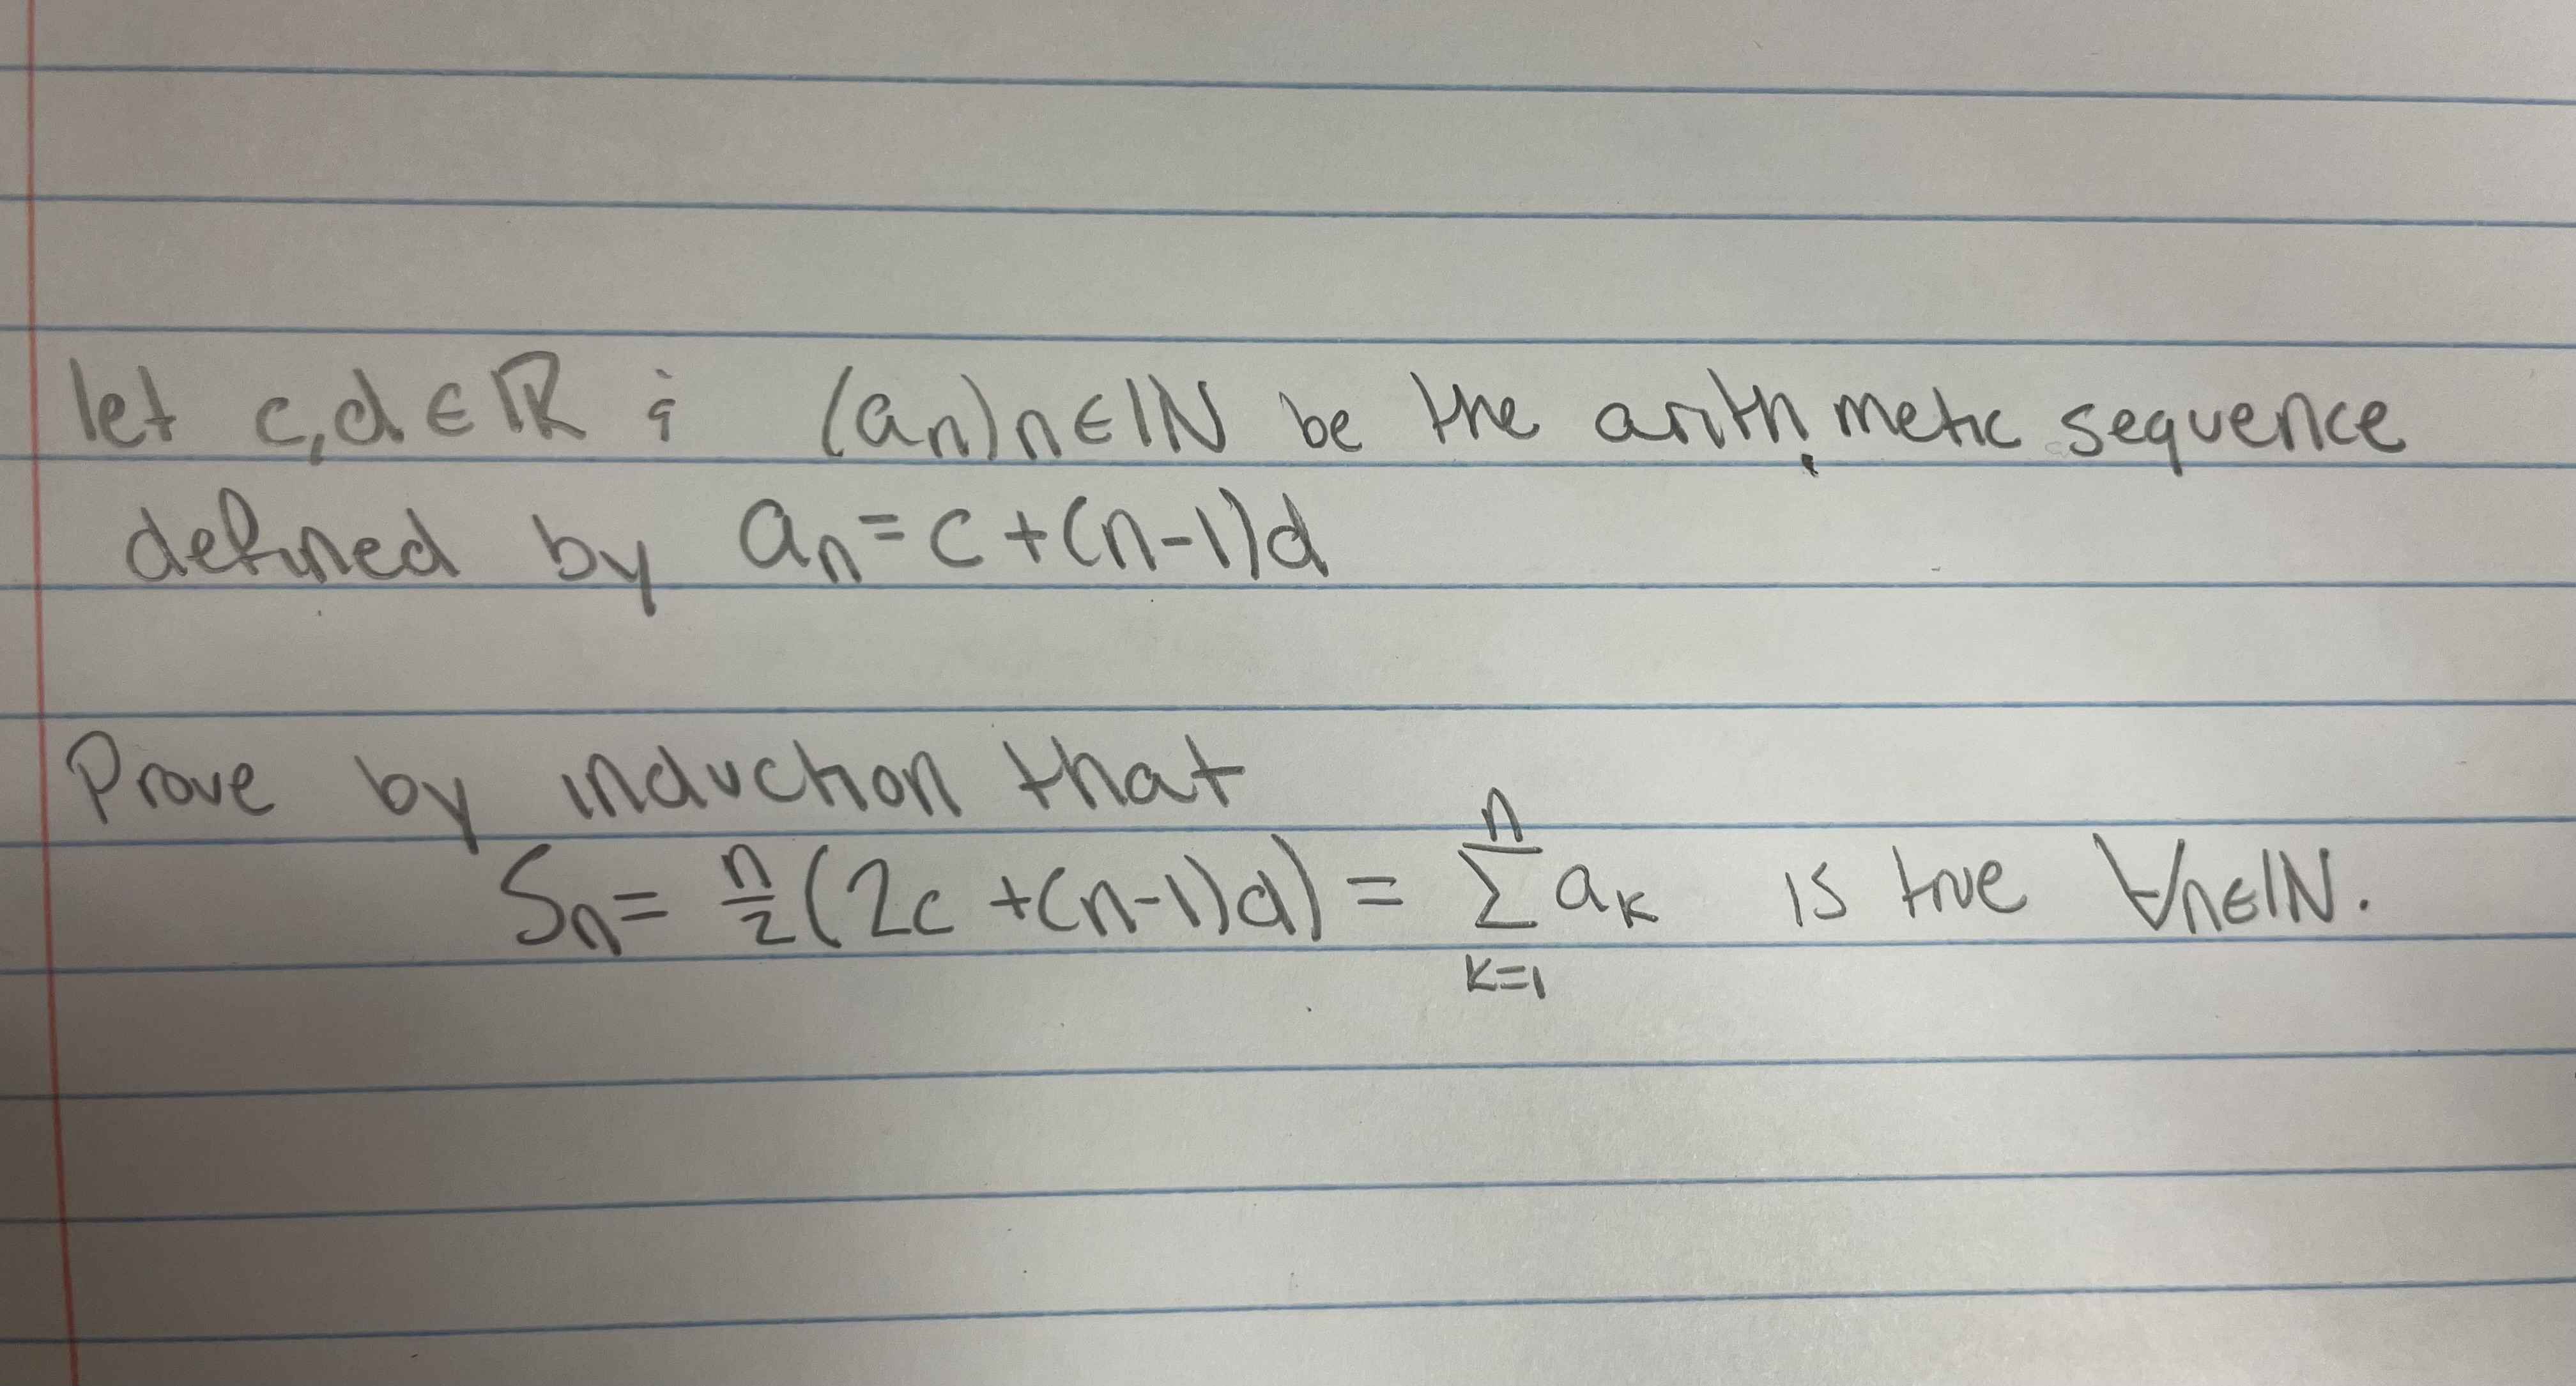 let c,d ∈ ℝ & (aₙ)n∈ℕ be the arithmetic sequence
defined by aₙ = c + (n-1)d
Prove by induction that
Sₙ = n/2 (2c + (n-1)d) = ∑ₖ₌₁ⁿ aₖ is true ∀n∈ℕ.